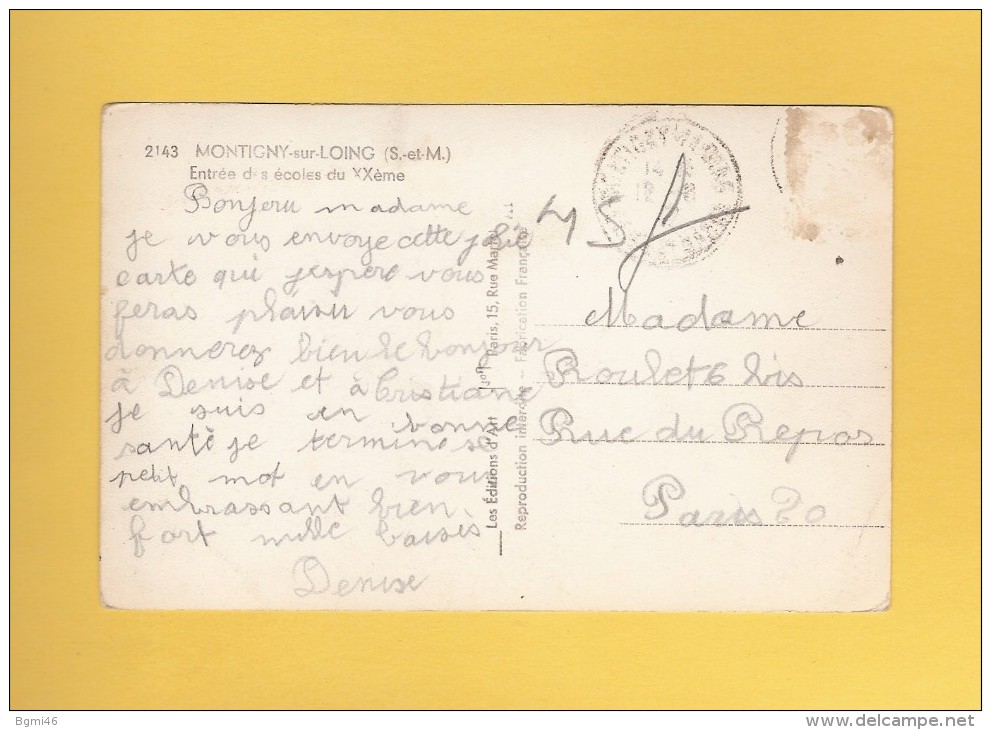 2143 MONTIGNY-sur-LOING (S.-et-M.)
Entrée des écoles du XXème
Bonjeru madame
je vous envoye cette jolie
carte qui jespere vous
feras plaisir vous
donnerez bien le bonjour
à Denise et à Cristiane
je suis en bonne
santé je termine se
petit mot en vous
embrassant bien
fort mille baisès
Denise
Les Éditions d'Art Paris, 15, Rue Martel
Reproduction interdite — Fabrication Française
Madame
Roulet 6 bis
Rue du Repos
Paris 20
Bgmi46
http://www.delcampe.net